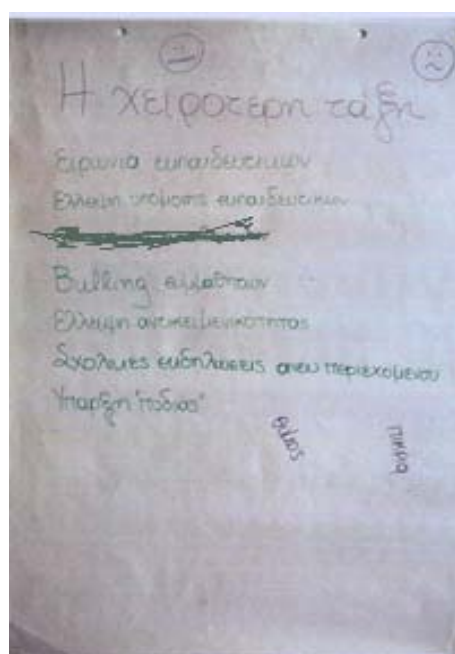 Η χειρότερη τάξη
Ειρωνία εκπαιδευτικών
Έλλειψη υπομονής εκπαιδευτικών
Bulling συμμαθητών
Έλλειψη αντικειμενικότητας
Σχολικές εκδηλώσεις άνευ περιεχομένου
Ύπαρξη "ποδιάς"